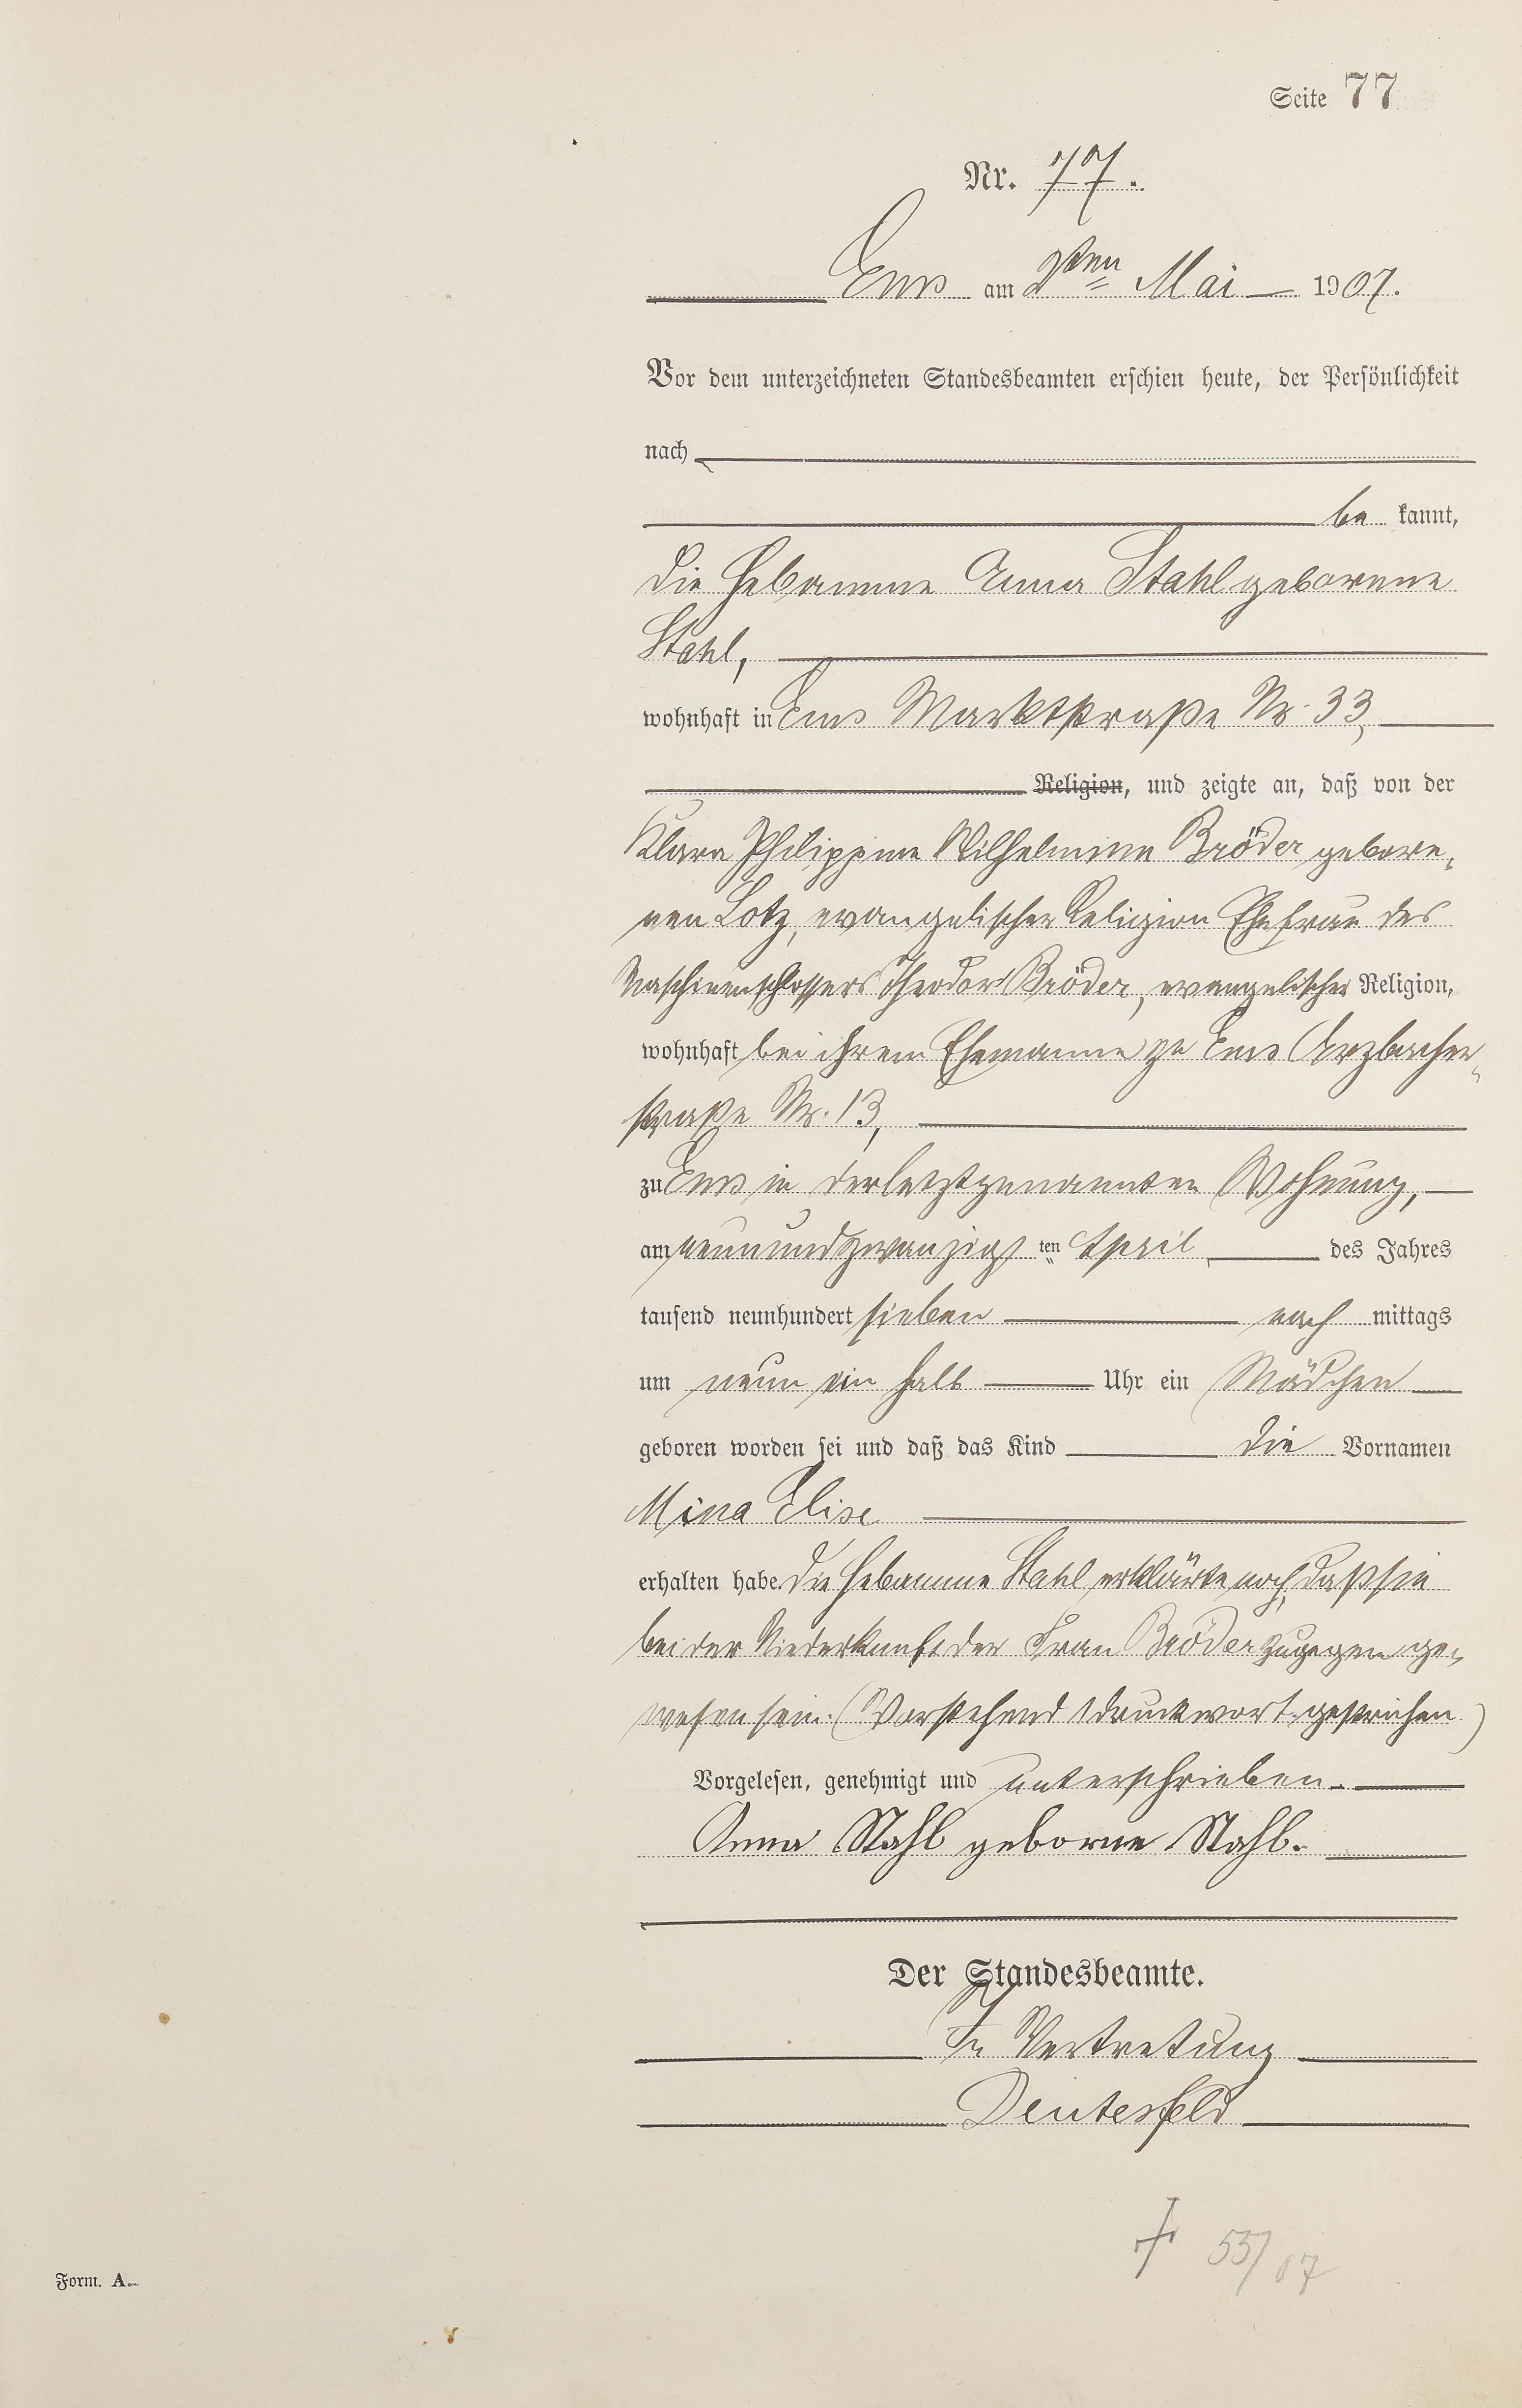 Seite 77
Nr. 77.
Ems am 2ten Mai 1907.
Vor dem unterzeichneten Standesbeamten erschien heute, der Persönlichkeit
nach
be kannt,
die Hebamme Anna Stahl geborene
Stahl,
wohnhaft in Ems Marktstraße Nr. 33,
Religion, und zeigte an, daß von der
Klara Philippine Wilhelmine Bröder gebore-
nen Lotz, evangelischer Religion Ehefrau des
Maschinenschlossers Theodor Bröder, evangelischer Religion,
wohnhaft bei ihrem Ehemanne zu Ems Arzbacher-
straße Nr. 13,
zu Ems in der letztgenannten Wohnung,
am neunundzwanzigs ten April des Jahres
tausend neunhundert sieben nach mittags
um neun ein halb Uhr ein Mädchen
geboren worden sei und daß das Kind die Vornamen
Mina Elise
erhalten habe. Die Hebamme Stahl erklärte noch, daß sie
bei der Niederkunft der Frau Bröder zugegen ge-
wesen sei. (Vorstehend 1 Druckwort gestrichen)
Vorgelesen, genehmigt und unterschrieben.
Anna Stahl geborne Stahl.
Der Standesbeamte.
In Vertretung
Deutesfeld
† 55/07
Form. A.